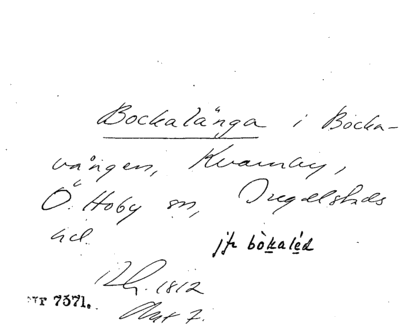 Bockalänga i Bocka-
vången, Kvarnby,
Ö. Hoby sn, Ingelstads
hd.
jfr bòkaléd
1812
Akt 7.
NR 7371.